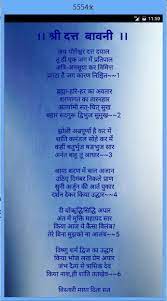 5554:k
11:50
।। श्री दत्त बावनी ।।
जय योगीश्वर दत्त दयाल
तू ही एक जग में प्रतिपाल
अत्रि-अनसूया कर निमित्त
प्रगटा है जग कारण निश्चित~~1
ब्रह्मा-हरि-हर का अवतार
शरणागत का तारणहार
सत् चित् सुख
बाहर सदगुरु द्विभुज सुमुख~~2
झोली अन्नपूर्णा है कर में
शांति कमंडल सोहे कर में
कहीं चतुर्भुज षडभुज सार
अनंत बाहु तू आधार~~3
आया शरण में बाल अजान
उठिए दिगंबर निकले प्राण
सुनी अर्जुन की आर्त पुकार
दर्शन देकर किया उद्धार~~4
दी अपार
अंत में मुक्ति महापद सार
किया आज में कैसा विलंब
तेरे बिना मुझको ना आलंब~~5
विष्णु शर्म द्विज का उद्धार
किया भोज लख प्रेम अपार
जंभ दैत्य से त्रासित देव
किया नाश,ली शांति ~~6
विस्तारी माया दिति सुत